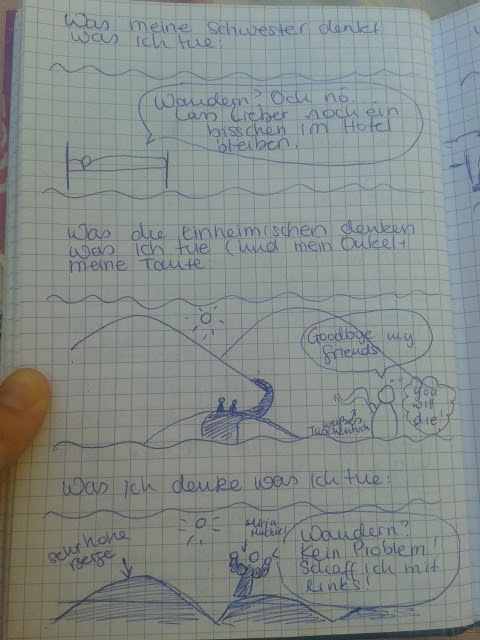 Was meine Schwester denkt
was ich tue:
Wandern? Och nö.
Lass lieber noch ein
bisschen im Hotel
bleiben.
Was die Einheimischen denken
was ich tue (und mein Onkel +
meine Tante
Goodbye my
friends
You
will
die!
weißes
Taschentuch
Was ich denke was ich tue:
sehr hohe
Berge
Wandern?
Kein Problem!
Schaff ich mit
links!